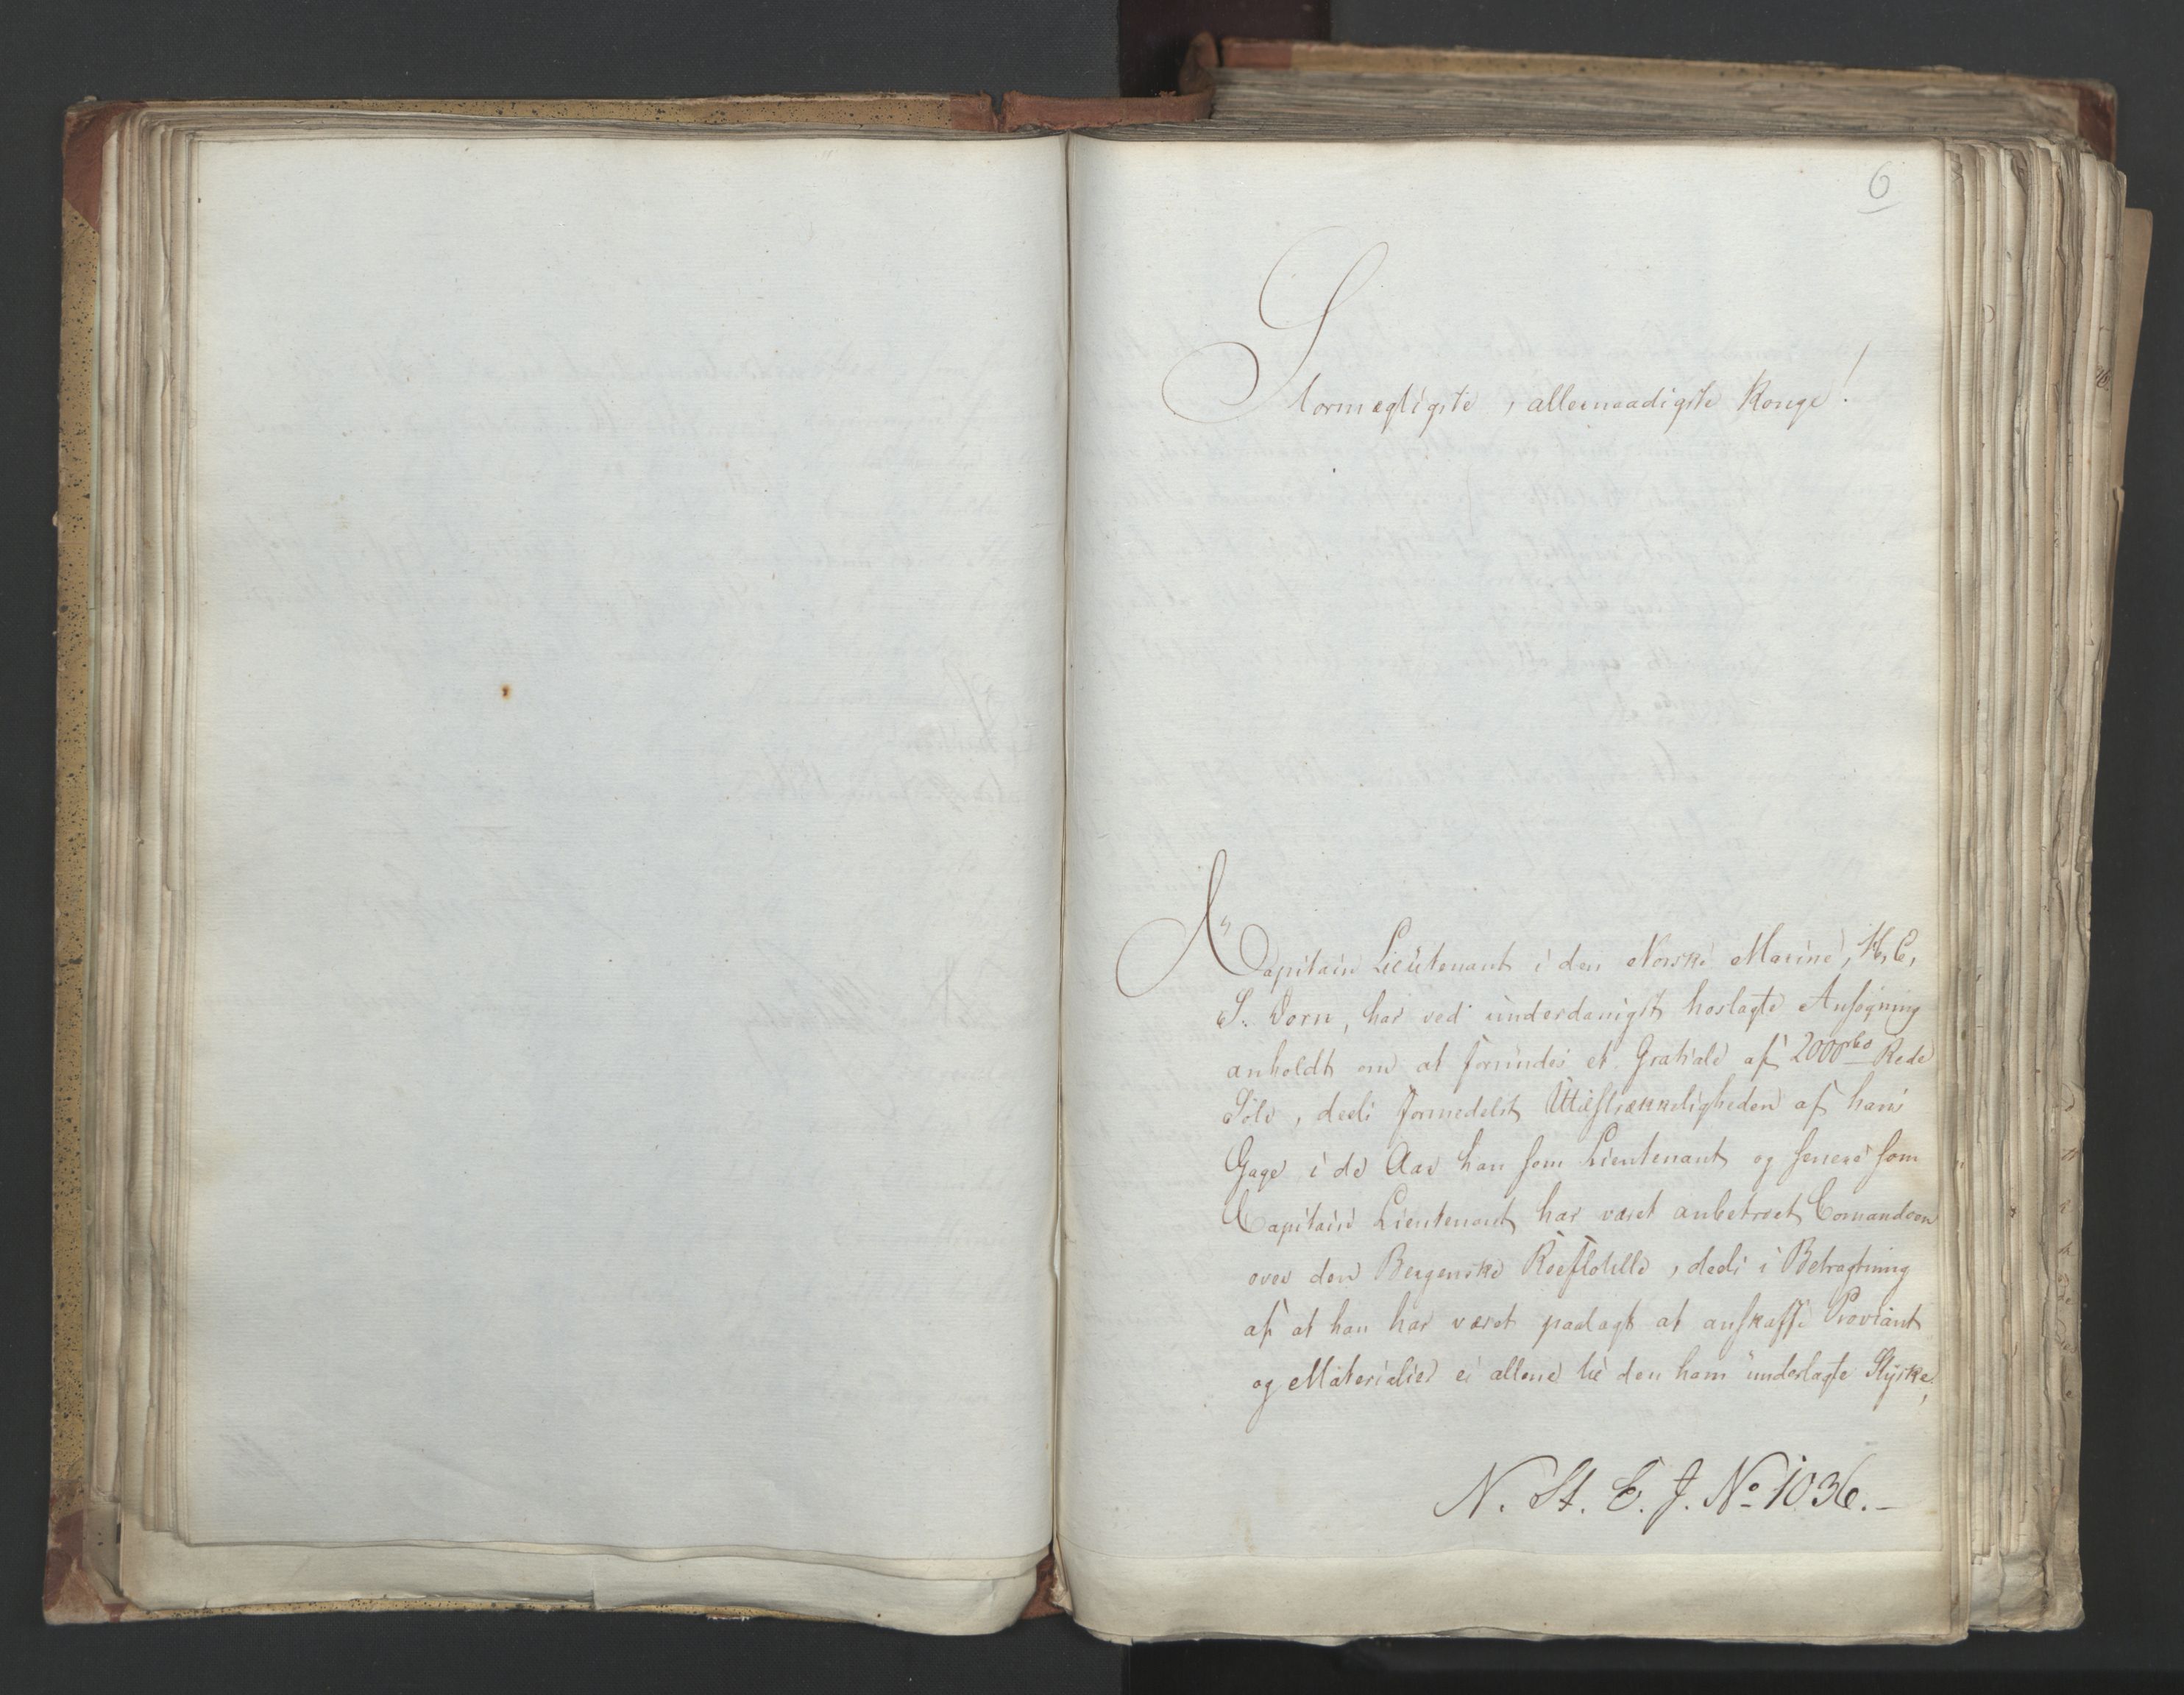 6
Stormægtigste, allernaadigste Konge!
Capitain Lieutenant i den Norske Marine, K, C,
S. Dorn, har ved underdanigst hoslagte Ansøgning
anholdt om at forundes et Gratiale af 2000 rbd Rede
Sølv, deels formedelst Utilstrækkeligheden af hans
Gage i de Aar han som Lieutenant og senere som
Capitain Lieutenant har været anbetroet Comandoen
over den Bergenske Roeflotille, deels i Betragtning
af at han har været paalagt at anskaffe Proviant
og Materialier ei allene til den ham underlagte Styrke,
N. St. E. J. No 1036.-